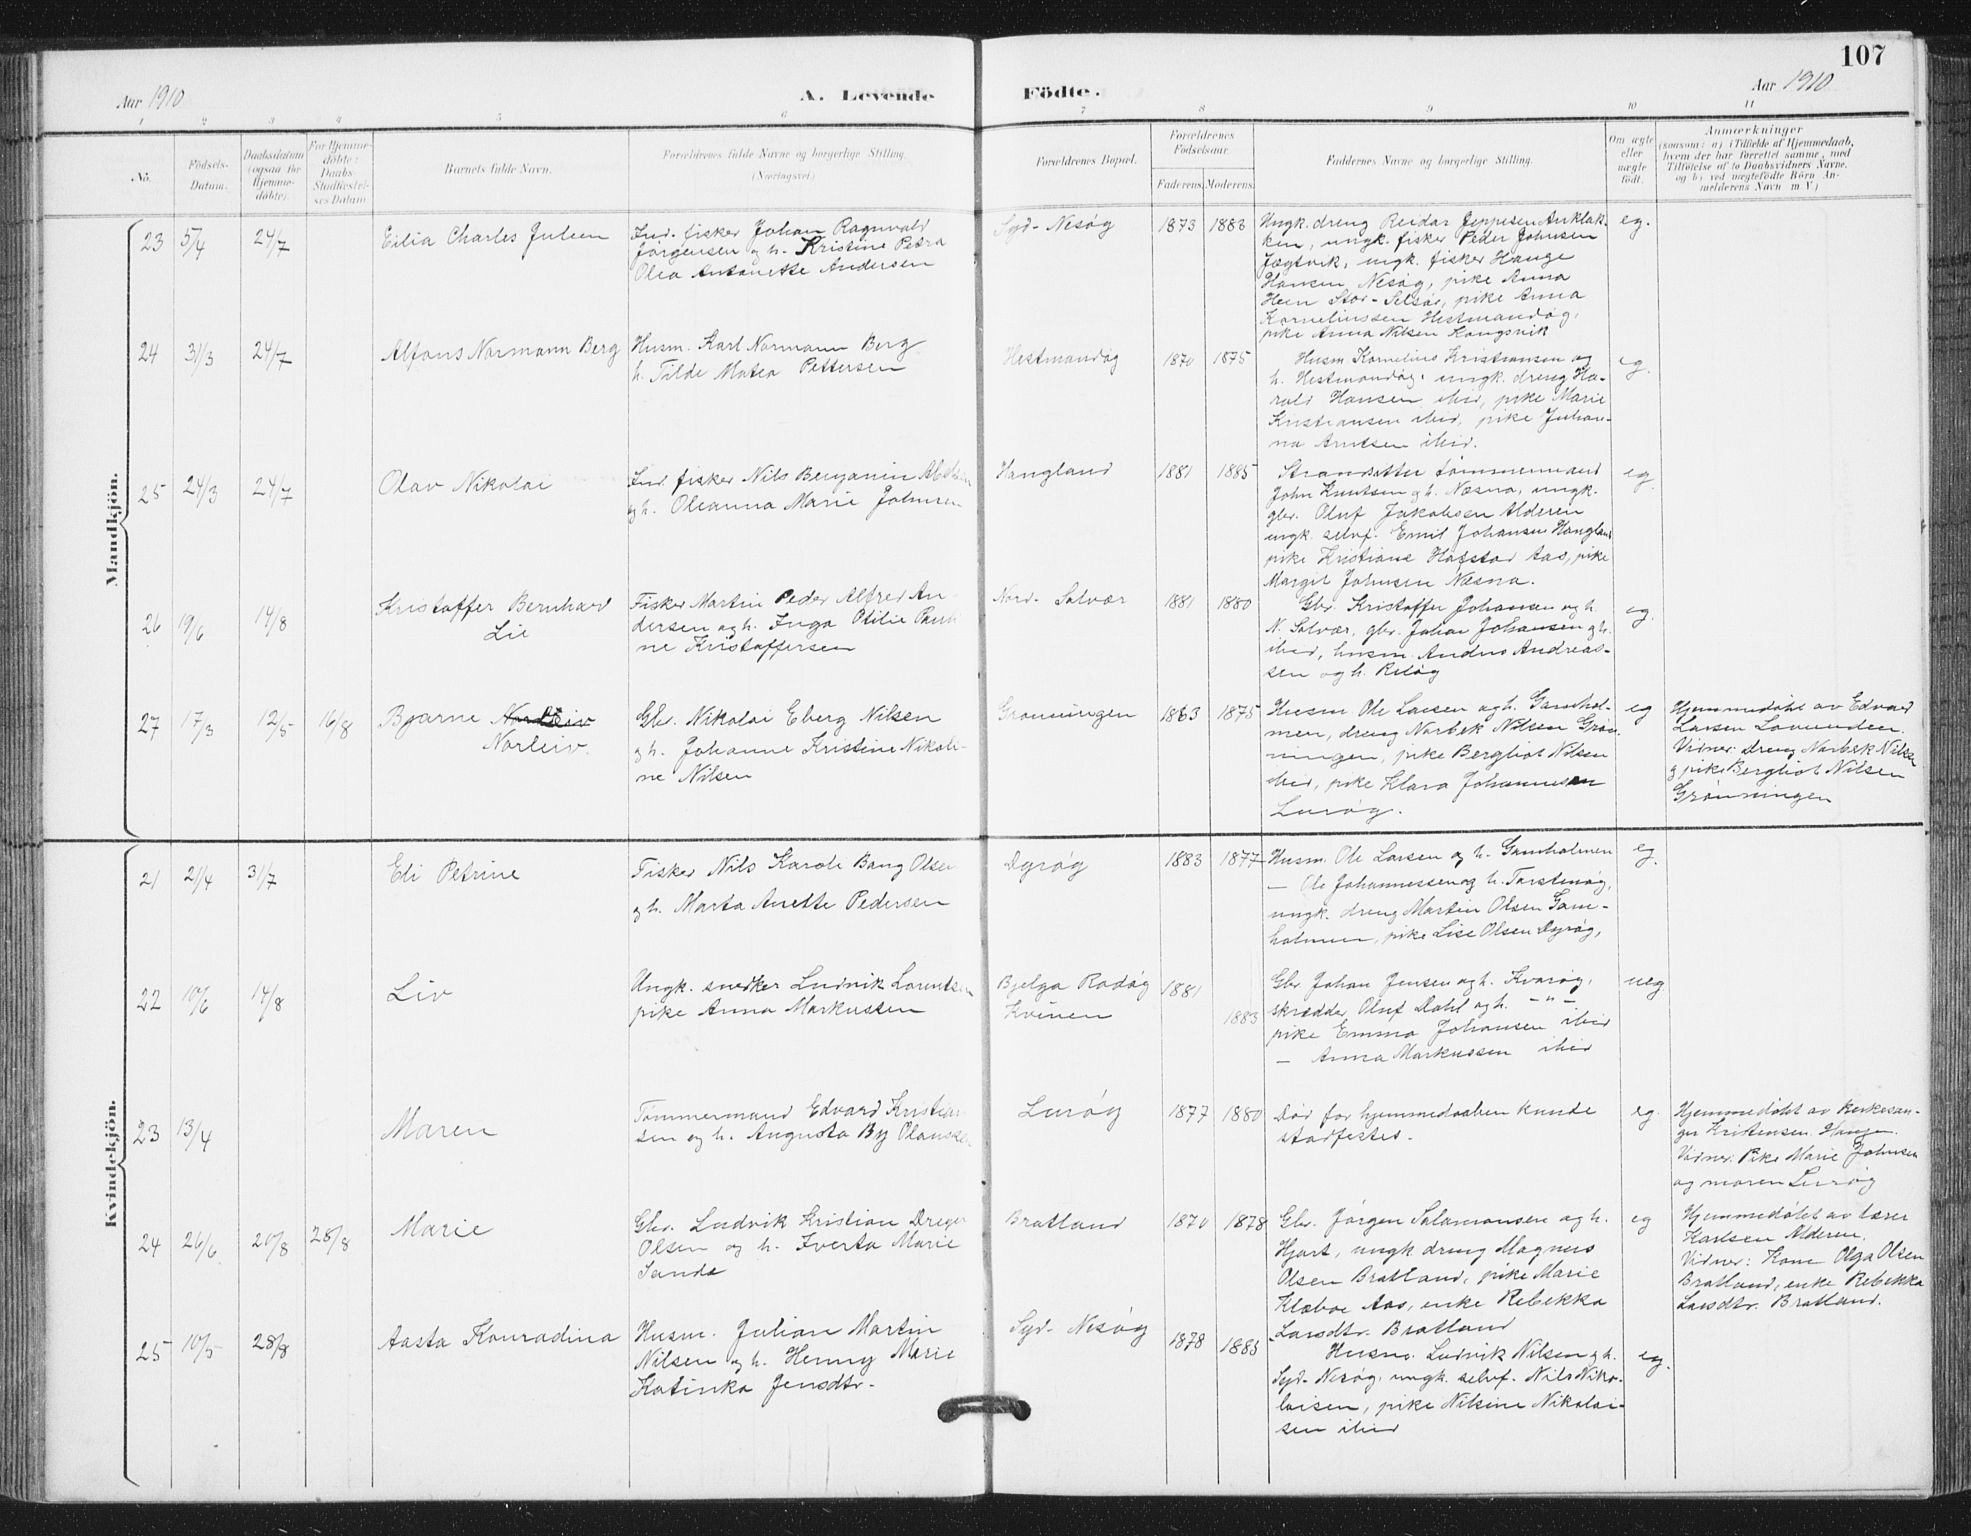 107
Aar 1910
A. Levende
Födte.
Aar 1910
1 2 3 4 5 6 7 8 9 10 11
No.
Födsels-
Datum.
Daabsdatum
(ogsaa for
Hjemme-
döbte).
For Hjemme-
döbte:
Daabs-
Stadfæstel-
ses Datum.
Barnets fulde Navn.
Forældrenes fulde Navne og borgerlige Stilling.
(Næringsvei.)
Forældrenes Bopæl.
Forældrenes
Födselsaar.
Faderens. Moderens.
Faddernes Navne og borgerlige Stilling.
Om ægte
eller
uægte
födt.
Anmærkninger
(saasom: a) i Tilfælde af Hjemmedaab,
hvem der har forrettet samme, med
Tilföielse af to Daabsvidners Navne,
og b) ved uægtefödte Börn An-
melderens Navn m. V.)
Mandkjön.
23 5/4 24/7
Eilia Charles Juleen
Ind. fisker Johan Ragnvald
Jørgensen og h. Kristine Petra
Olea Antonette Andersen
Syd-Nesøy
1873 1883
Ungk. dreng Reidar Jeppesen Anklak-
ken, ungk. fisker Peder Johnsen
Jægtvik, ungk. fisker Hauge
Hansen Nesøy, pike Anna
Heen Stor-Selsøy, pike Anna
Korneliussen Hestmandøy,
pike Anna Nilsen Kongsvik
eg.
24 31/3 24/7
Alfons Normann Berg
Husm. Karl Normann Berg
h. Tilde Matea Pettersen
Hestmandøy
1870 1875
Husm Kornelius Kristiansen og
h. Hestmandøy. ungk. dreng Ha-
rald Hansen ibid, pike Marie
Kristiansen ibid, pike Johan-
na Arntsen ibid.
eg.
25 24/3 24/7
Olav Nikolai
Ind. fisker Nils Benjamin Abelsen
og h. Oleanna Marie Johnsen
Hangland
1881 1885
Strandsitter tømmermand
John Knutsen og h. Næsna, ungk.
gbr. Oluf Jakobsen Alderen
ungk. selvf. Emil Johansen Hangland
pike Kristiane Hafstad Aas, pike
Margit Johnsen Næsna.
eg.
26 19/6 14/8
Kristoffer Bernhard
Lie
Fisker Martin Peder Alfred An-
dersen og h. Inga Otilie Pauli-
ne Kristoffersen
Nord-Solvær
1881 1880
Gbr. Kristoffer Johansen og h.
N. Solvær, gbr. Johan Johansen og h.
ibid, husm. Andus Andreas-
sen og h. Reløy
eg.
27 17/3 12/5 16/8
Bjarne
Norleiv.
Gbr. Nikolai Eberg Nilsen
og h. Johanne Kristine Nikoli-
ne Nilsen
Grønningen
1863 1875
Husm Ole Larsen og h. Gamhol-
men, dreng Norbek Nilsen Grøn-
ningen, pike Bergliot Nilsen
ibid, pike Klara Johannesen
Lurøy.
eg
Hjemmedøbt av Edvard
Larsen Lovunden.
Vidner: Dreng Norbek Nilsen
og pike Bergliot Nilsen
Grønningen
Kvindekjön.
21 21/4 31/7
Eli Petrine
Fisker Nils Karole Bang Olsen
og h. Marta Anette Pedersen
Dyrøy
1883 1877
Husm. Ole Larsen og h. Gamholmen
— Ole Johannessen og h. Torstenøy,
ungk. dreng Martin Olsen Gam-
holmen, pike Lise Olsen Dyrøy,
eg.
22 10/6 14/8
Liv
Ungk. snedker Ludvik Lorentsen
pike Anna Markussen
Bjelga Rødøy
Kvinen
1881
1883
Gbr Johan Jensen og h. Kvarøy,
skrædder Oluf Dahl og h. - " -
pike Emma Johansen ibid
— Anna Markussen ibid
ueg
23 13/4
Maren
Tømmermand Edvard Kristian-
sen og h. Augusta By Olausen
Lurøy
1877 1880
Død før hjemmedaaben kunde
stadfestes.
eg.
Hjemmedøbt av kirkesan-
ger Kristensen Haugen.
Vidner: Pike Marie Johnsen
og maren Lurøy
24 26/6 20/8 28/8
Marie
Gbr. Ludvik Kristian Dreyer
Olsen og h. Iverta Marie
Sande
Bratland
1870 1878
Gbr. Jørgen Salamonsen og h.
Hjart, ungk dreng Magnus
Olsen Bratland, pike Marie
Klæboe Aas, enke Rebekka
Larsdtr. Bratland
eg
Hjemmedøbt av lærer
Karlsen Alderen.
Vidner: Kone Olga Olsen
Bratland, enke Rebekka
Larsdtr. Bratland.
25 10/5 28/8
Aasta Konradina
Husm. Julian Martin
Nilsen og h. Henny Marie
Katinka Jensdtr.
Syd-Nesøy
1878 1885
Husm. Ludvik Nilsen og h.
Syd-Nesøy, ungk. selvf. Nils Niko-
laisen, pike Nilsine Nikolai-
sen ibid
eg.